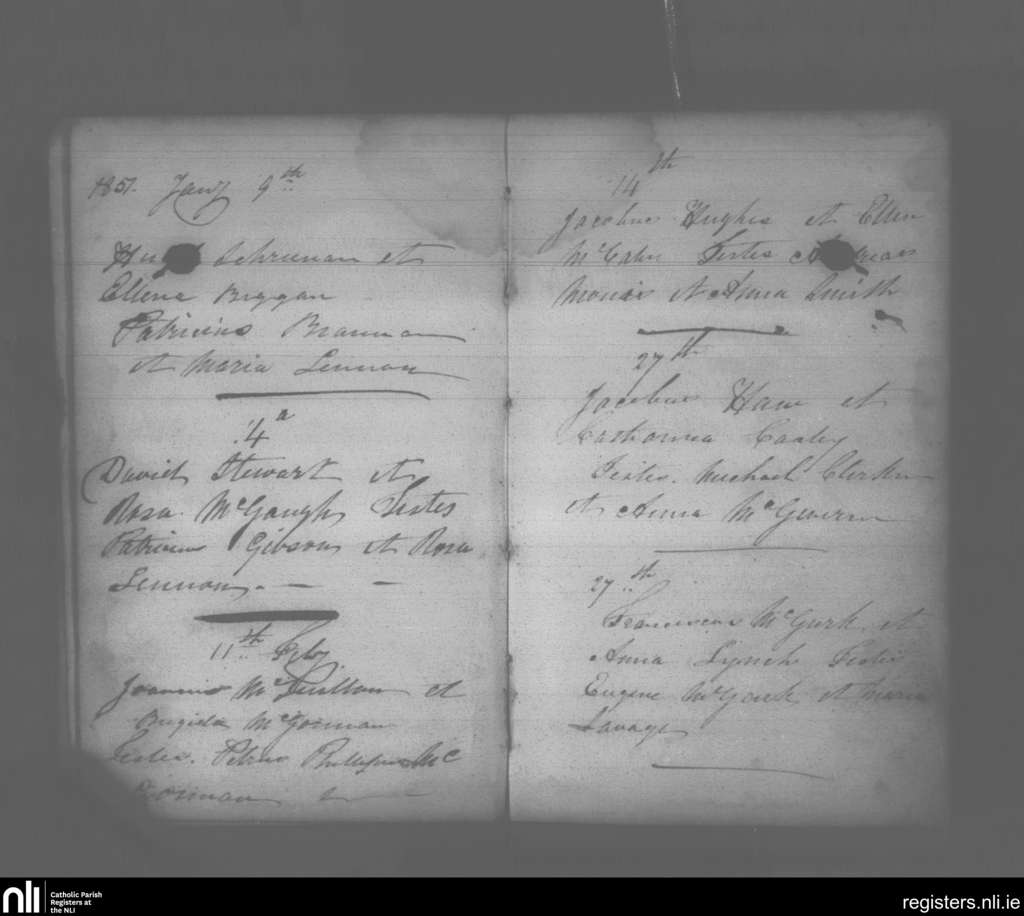 1851. Jany 9th
et
Ellena Biggan
Patricius Brannan
et Maria Lennon
14a
David Stewart et
Rosa McGaugh Testes
Patricius Gibson et Rosa
Lennon. — —
11th Feby
Joannis et
Brigida McGorman
Testes. Petrus Mc
Gorman
14th
Jacobus Hughes et Ellen
McCahn Testes
et Anna Smith
27th
Jacobus Haw et
Catharina
Testes. Michael
et Anna McGovern
27th
Franciscus McGurk et
Anna Lynch Testes
Eugene McGurk et Maria
Savage
nli
Catholic Parish
Registers at
the NLI
registers.nli.ie